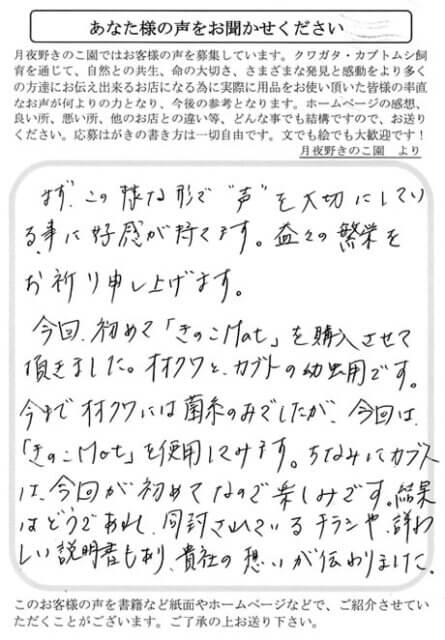 あなた様の声をお聞かせください
月夜野きのこ園ではお客様の声を募集しています。クワガタ・カブトムシ飼
育を通じて、自然との共生、命の大切さ、さまざまな発見と感動をより多く
の方達にお伝え出来るお店になる為に実際に用品をお使い頂いた皆様の率直
なお声が何よりの力となり、今後の参考となります。ホームページの感想、
良い所、悪い所、他のお店との違い等、どんな事でも結構ですので、お送り
ください。応募はがきの書き方は一切自由です。文でも絵でも大歓迎です！
月夜野きのこ園　より
まず、この様な形で〝声〟を大切にしてい
る事に好感が持てます。益々の繁栄を
お祈り申し上げます。
今回、初めて「きのこMat」を購入させて
頂きました。オオクワと、カブトの幼虫用です。
今までオオクワには菌糸のみでしたが、今回は、
「きのこMat」を使用してみます。ちなみにカブト
は、今回が初めてなので楽しみです。結果
はどうであれ、同封されているチラシや、詳わ
しい説明書もあり、貴社の想いが伝わりました。
このお客様の声を書籍など紙面やホームページなどで、ご紹介させてい
ただくことがございます。ご了承の上お送り下さい。